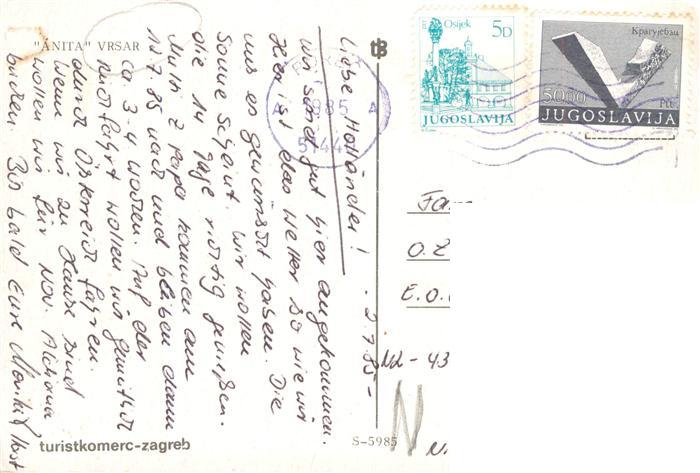 "ANITA" VRSAR
Liebe Holländer!
2.7.85-
wir sind gut hier angekommen.
Hier ist das Wetter so wie wir
uns es gewünscht haben. Die
Sonne scheint. Wir wollen
die 14 Tage richtig genießen.
Mutti & Papa kommen am
12.7.85 nach und bleiben dann
ca. 3-4 Wochen. Auf der
Rückfahrt wollen wir gemütlich
durch Österreich fahren.
Wenn wir zu Hause sind
wollen wir für Nov.
buchen. Bis bald Eure
turistkomerc-zagreb
S-5985
tb
1985
A A
51445
Osijek
5D
JUGOSLAVIJA
5000
JUGOSLAVIJA
Fa
O.Z
E.O.
NL-43
N
N.